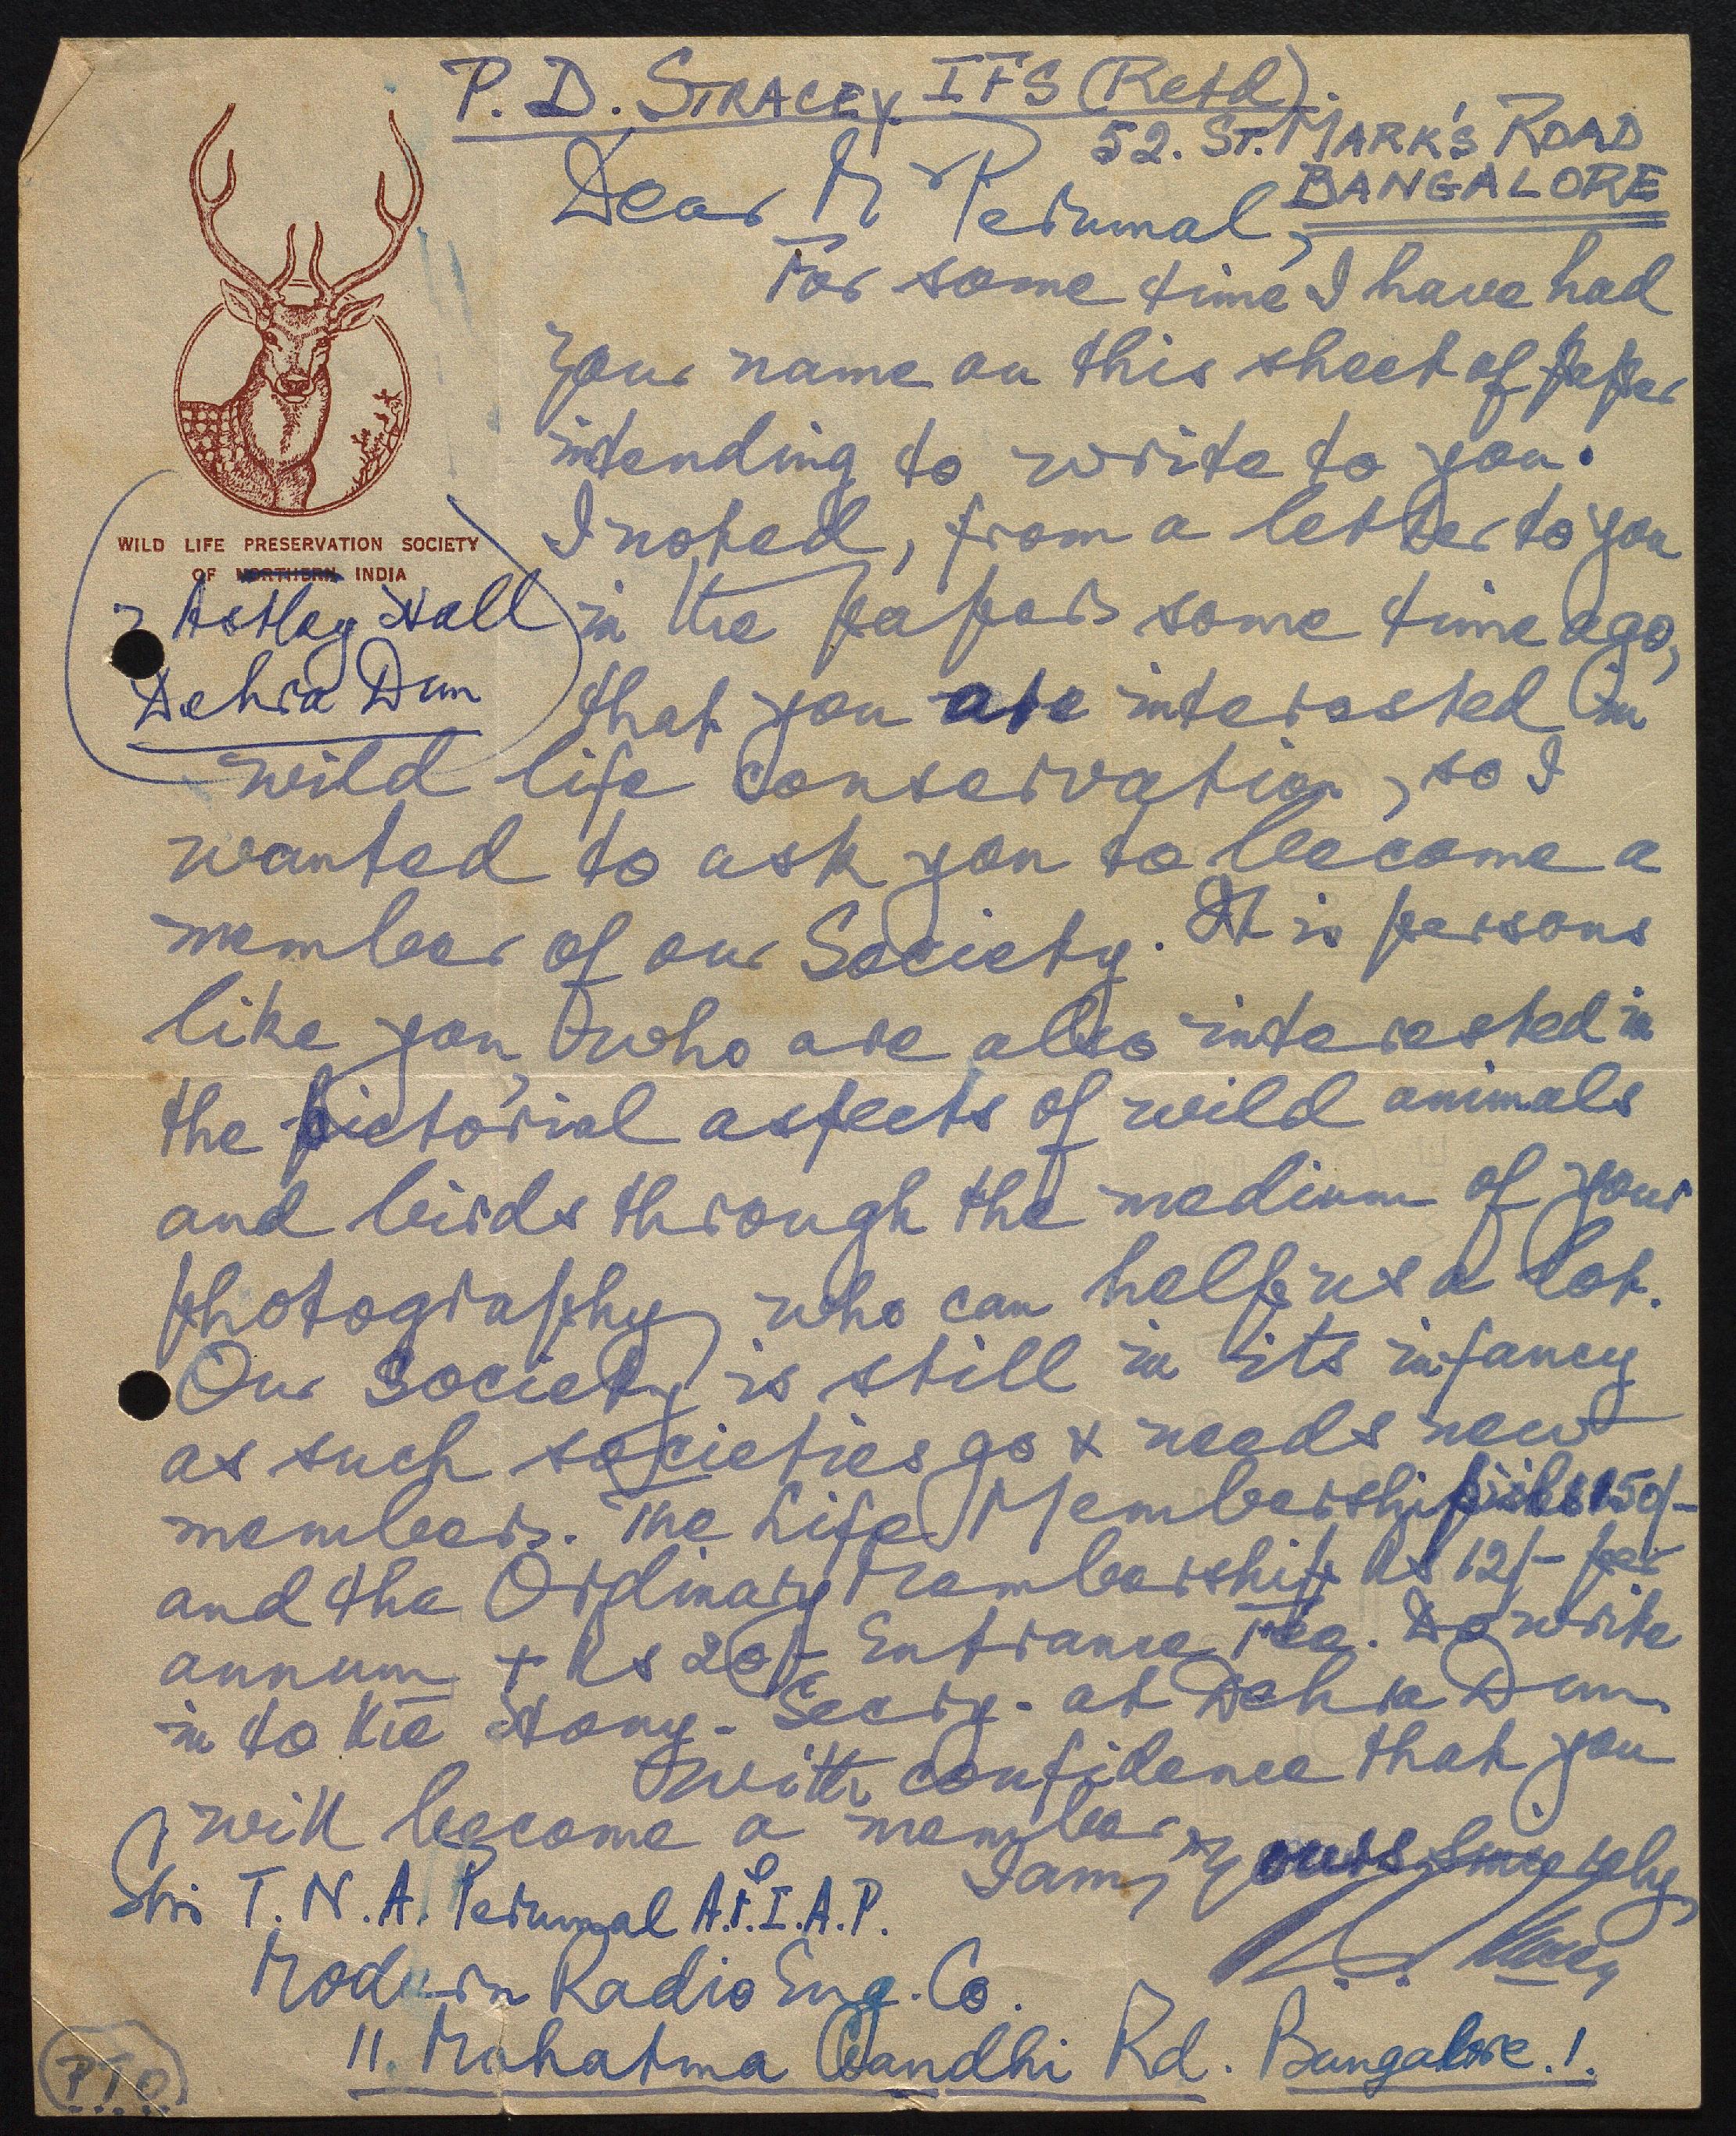 P. D. STRACEY IFS (Retd).
52. ST. MARK'S ROAD
BANGALORE
WILD LIFE PRESERVATION SOCIETY
OF NORTHERN INDIA
7 Astley Hall
Dehra Dun
Dear Mr Perumal,
For some time I have had
your name on this sheet of paper
intending to write to you.
I noted, from a letter to you
in the papers some time ago,
that you are interested in
wild life conservation, so I
wanted to ask you to become a
member of our Society. It is persons
like you, who are also interested in
the pictorial aspects of wild animals
and birds through the medium of your
photography, who can help us a lot.
Our Society is still in its infancy
as such societies go & needs new
members. The Life Membership is Rs 150/-
and the Ordinary Membership Rs 12/- per
annum + Rs 20/- Entrance Fee. Do write
in to the Hony. Secry. at Dehra Dun.
With confidence that you
will become a member,
I am, yours sincerely,
Stracey
Shri T. N. A. Perumal A.F.I.A.P.
Modern Radio Eng. Co.
11. Mahatma Gandhi Rd. Bangalore. 1.
PTO